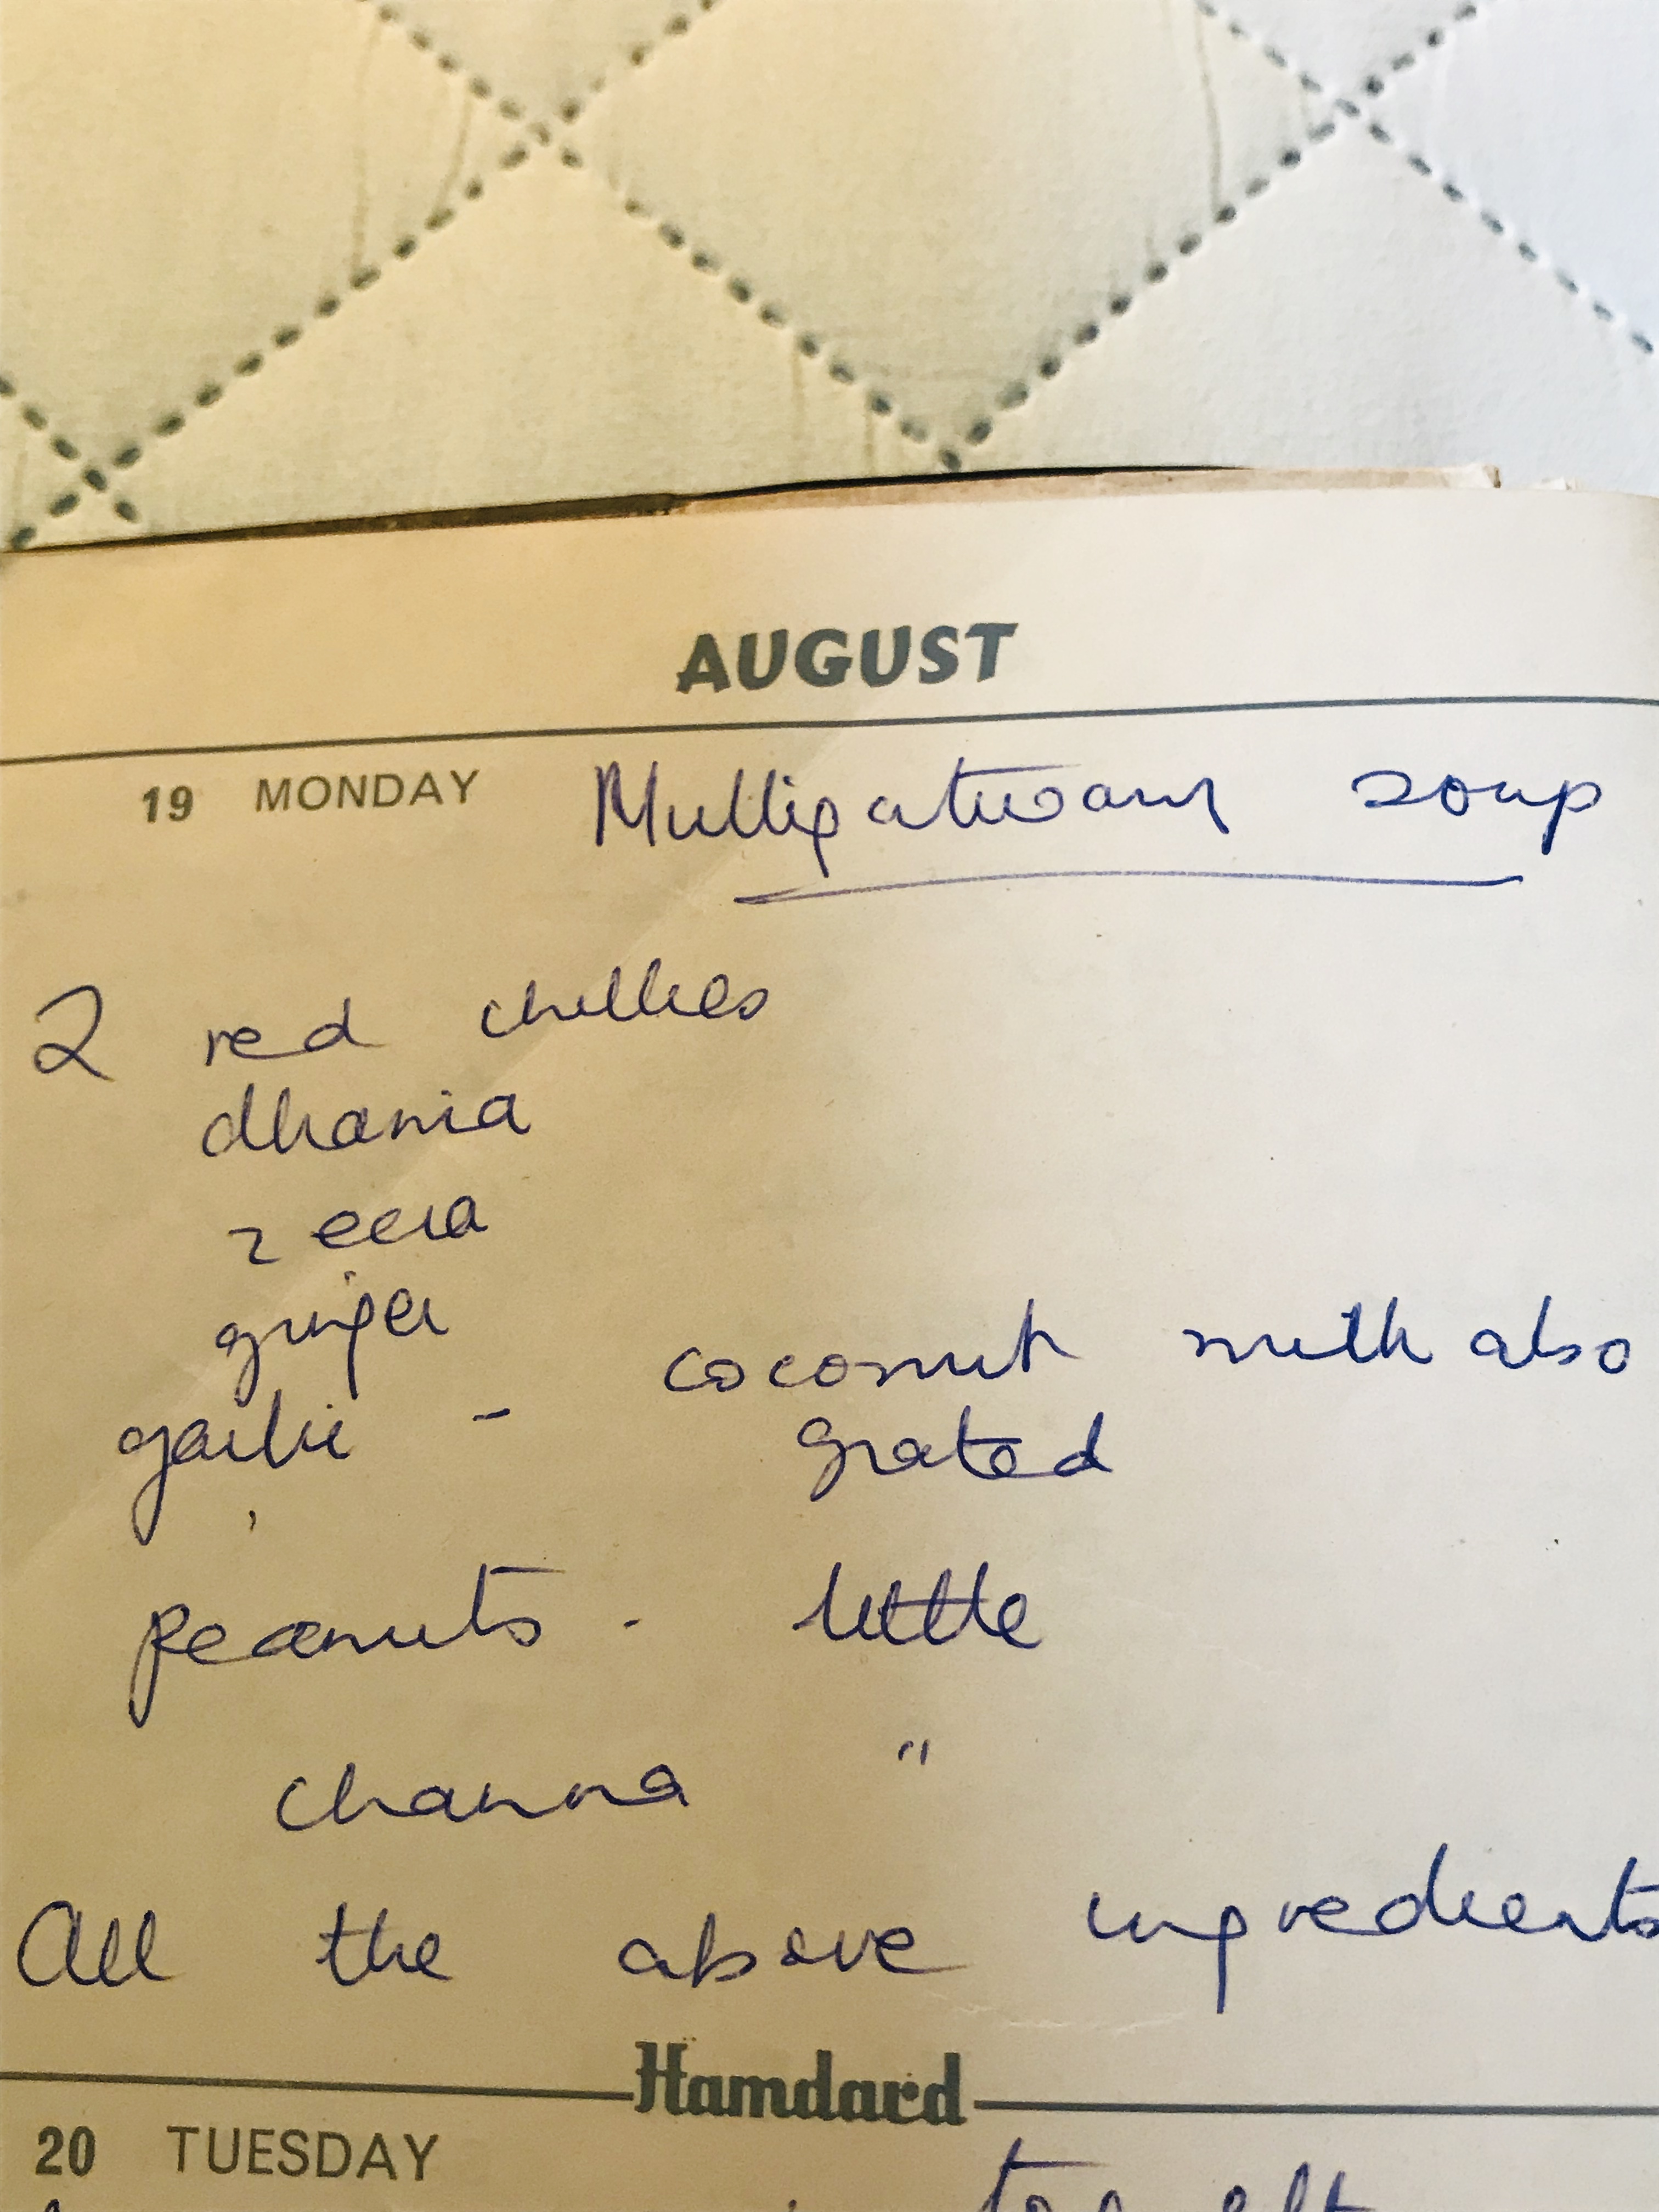 AUGUST
19 MONDAY Mulligatwany soup
2 red chillies
dhania
zeera
ginger
coconut milk also
garlic -
grated
peanuts - little
channa "
All the above ingredients
Hamdard
20 TUESDAY